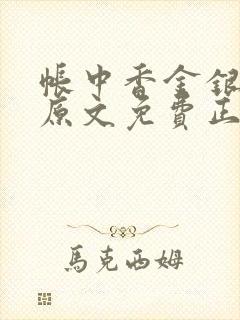 帳中香金銀
原文免費正
馬克西姆